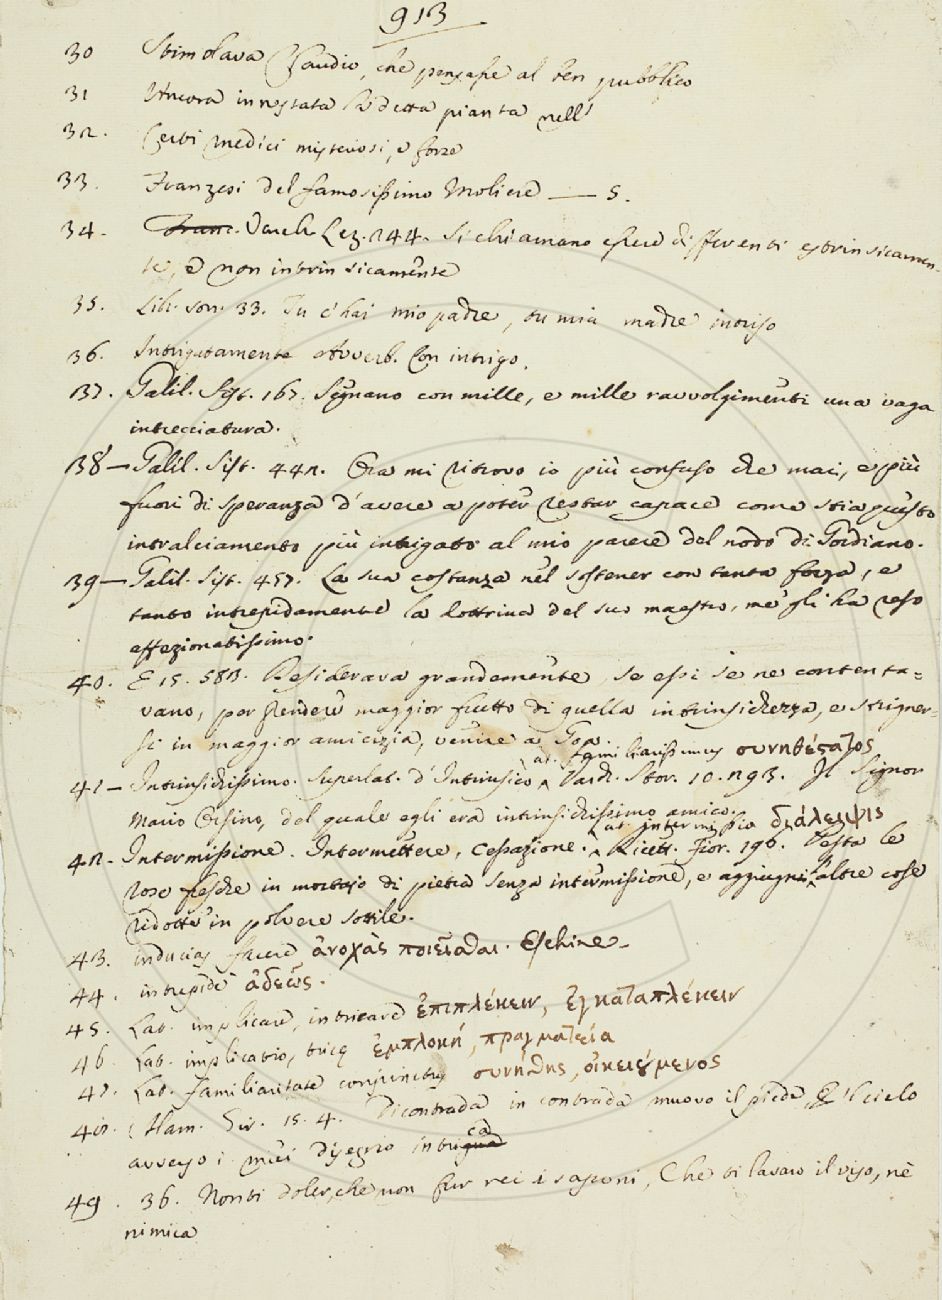 913
30 Stimolava Claudio, che pensasse al ben pubblico
31 Ancora innestata la detta pianta nell'
32. Certi medici misteriosi, e forse
33. Franzesi del famosissimo Moliere — 5.
34. Varch. Lez. 244. Si chiamano essere differenti estrinsicamen-
te, e non intrinsicamente
35. Lib. son. 33. Tu c'hai mio padre, tu mia madre intriso
36. Intrigatamente Avverb. Con intrigo.
37. Galil. Sist. 167. Segnano con mille, e mille ravvolgimenti una vaga
intrecciatura.
38 — Galil. Sist. 442. Ora mi ritrovo io più confuso che mai, e più
fuori di speranza d'avere a poter restar capace come stia questo
intralciamento più intrigato al mio parere del nodo di Gordiano.
39 — Galil. Sist. 457. La sua costanza nel sostener con tanta forza, e
tanto intrepidamente la dottrina del suo maestro, me gli ha reso
affezionatissimo.
40. E 15. 583. Desiderava grandemente, se essi se ne contenta=
vano, per prendere maggior frutto di quella intrinsichezza, e strigner-
si in maggior amicizia, venire a Goa.
Lat. familiarissimus συνηθέςατος
41 — Intrinsichissimo. Superlat. d'Intrinsico Varch. Stor. 10. 293. Il Signor
Mario Orsino, del quale egli era intrinsichissimo amico.
Lat. intermissio διάλειψις
42 - Intermissione. Intermettere, cessazione. Ricett. Fior. 196. Pesta le
rose fresche in mortajo di pietra senza intermissione, e aggiugni l'altre cose
ridotte in polvere sottile.
43. inducias facere ἀνοχὰς ποιεῖσθαι. Eschine -
44. intrepide ἀδεῶς.
45. Lat. implicare, intricare ἐπιπλέκειν, ἐγκαταπλέκειν
46. Lat. implicatio, tricę ἐμπλοκή, πραγματεία
47. Lat. Familiaritate conjunctus συνήθης, οἰκειούμενος
48. Alam. Gir. 15. 4. Di contrada in contrada muovo il piede, E 'l cielo
avverso i miei disegni intrica
49. 36. Non ti doler, che non fur rei i saponi, Che ti lavaro il viso, nè
nimica